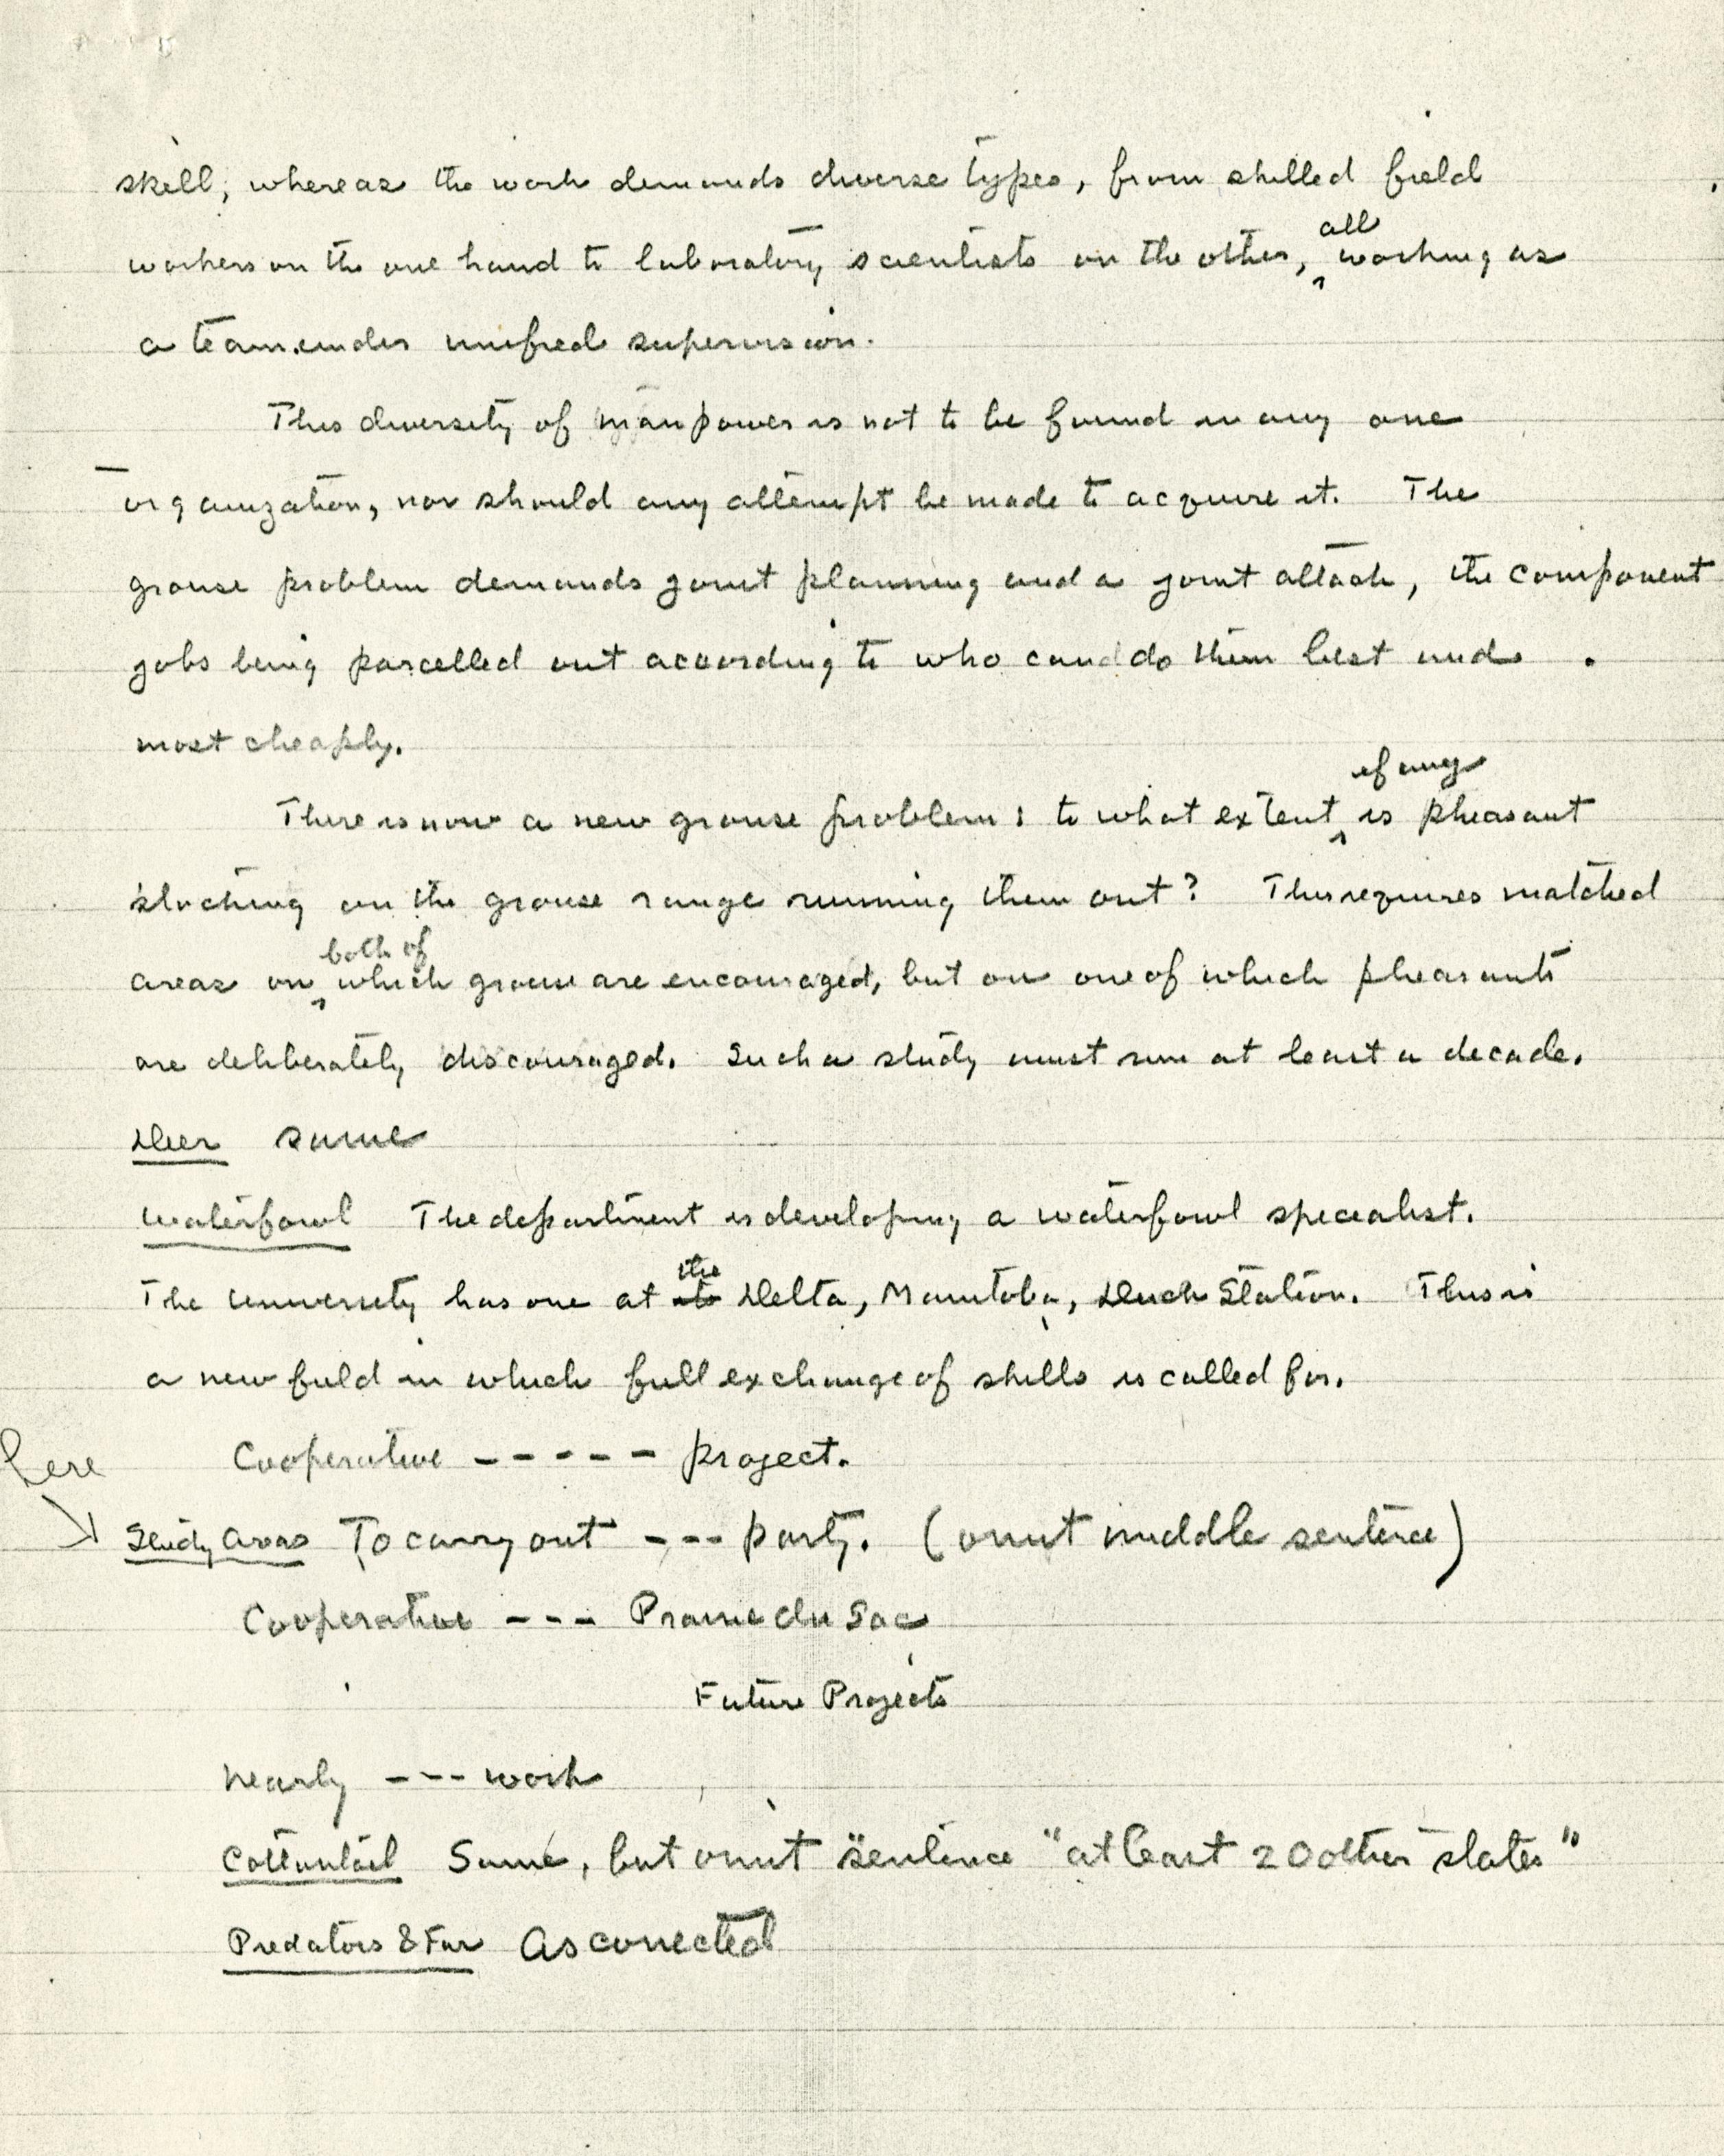 skill, whereas the work demands diverse types, from skilled field
workers on the one hand to laboratory scientists on the other, all working as
a team under unified supervision.
This diversity of manpower is not to be found in any one
organization, nor should any attempt be made to acquire it. The
grouse problem demands joint planning and a joint attack, the component
jobs being parcelled out according to who can do them best and
most cheaply.
There is now a new grouse problem: to what extent if any is pheasant
stocking on the grouse range running them out? This requires matched
areas on both of which grouse are encouraged, but on one of which pheasants
are deliberately discouraged. Such a study must run at least a decade.
Deer same
Waterfowl The department is developing a waterfowl specialist.
The University has one at the Delta, Manitoba, Duck Station. This is
a new field in which full exchange of skills is called for.
Cooperative ----- project.
here
Study Areas To carry out --- party. (omit middle sentence)
Cooperative --- Prairie du Sac
Future Projects
Nearly --- work
Cottontail Same, but omit sentence "at least 20 other states"
Predators & Fur As corrected